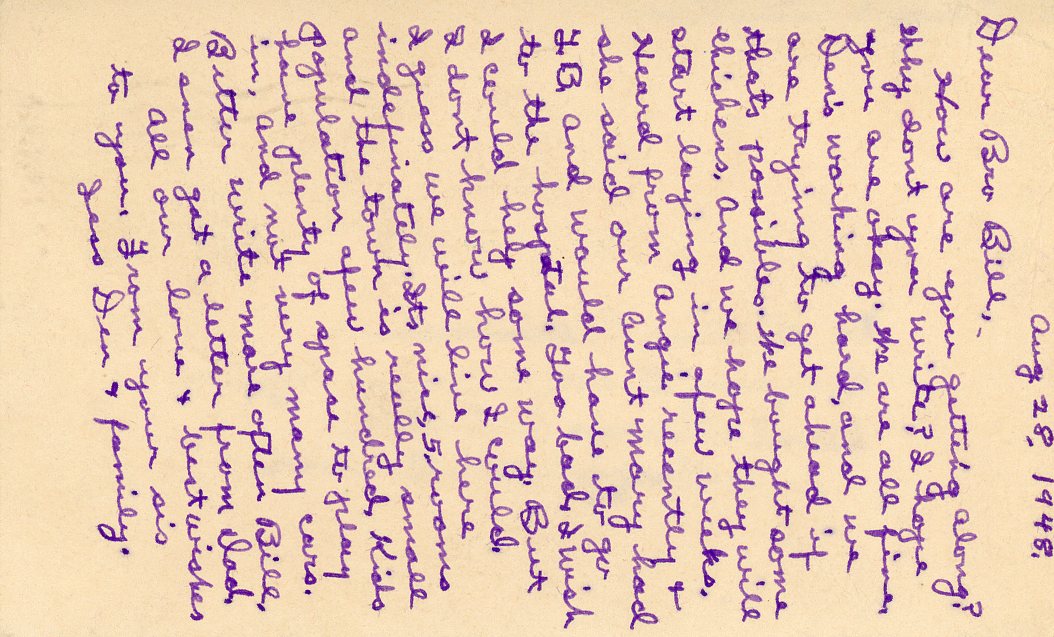 Aug 28, 1948.
Dear Bro Bill,
How are you getting along?
Why dont you write? I hope
you are okay. We are all fine,
Den's working hard, and we
are trying to get ahead if
thats possible. We bought some
chickens, and we hope they will
start laying in afew weeks.
Heard from Angie recently &
she said our Aunt Mary had
TB and would have to go
to the hosptal. Too bad, I wish
I could help some way. But
I dont know how I could.
I guess we will live here
indefinately. Its nice, 5, rooms
and the town is really small
Population afew hundred, Kids
have plenty of space to play
in, and not very many cars.
Better write more often Bill,
I snen got a letter from Dad,
All our love & best wishes
to you. From your sis
Jess Den & family.